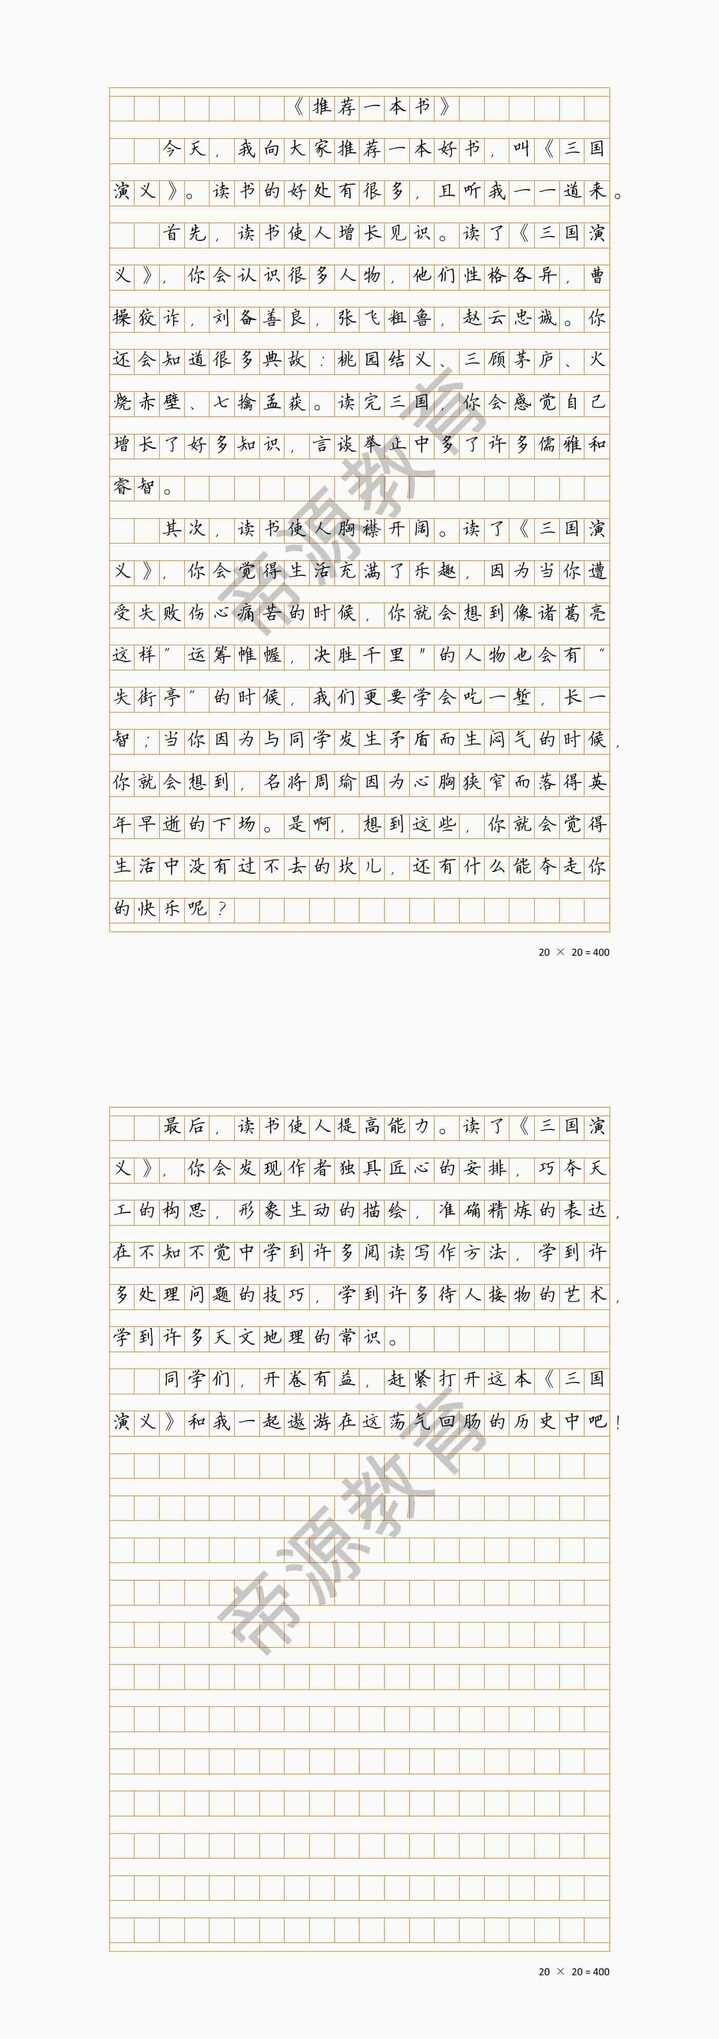 《推荐一本书》
今天，我向大家推荐一本好书，叫《三国
演义》。读书的好处有很多，且听我一一道来。
首先，读书使人增长见识。读了《三国演
义》，你会认识很多人物，他们性格各异，曹
操狡诈，刘备善良，张飞粗鲁，赵云忠诚。你
还会知道很多典故：桃园结义、三顾茅庐、火
烧赤壁、七擒孟获。读完三国，你会感觉自己
增长了好多知识，言谈举止中多了许多儒雅和
睿智。
其次，读书使人胸襟开阔。读了《三国演
义》，你会觉得生活充满了乐趣，因为当你遭
受失败伤心痛苦的时候，你就会想到像诸葛亮
这样”运筹帷幄，决胜千里"的人物也会有“
失街亭”的时候，我们更要学会吃一堑，长一
智；当你因为与同学发生矛盾而生闷气的时候，
你就会想到，名将周瑜因为心胸狭窄而落得英
年早逝的下场。是啊，想到这些，你就会觉得
生活中没有过不去的坎儿，还有什么能夺走你
的快乐呢？
20 × 20 = 400
最后，读书使人提高能力。读了《三国演
义》，你会发现作者独具匠心的安排，巧夺天
工的构思，形象生动的描绘，准确精炼的表达，
在不知不觉中学到许多阅读写作方法，学到许
多处理问题的技巧，学到许多待人接物的艺术，
学到许多天文地理的常识。
同学们，开卷有益，赶紧打开这本《三国
演义》和我一起遨游在这荡气回肠的历史中吧！
20 × 20 = 400
帝源教育
帝源教育